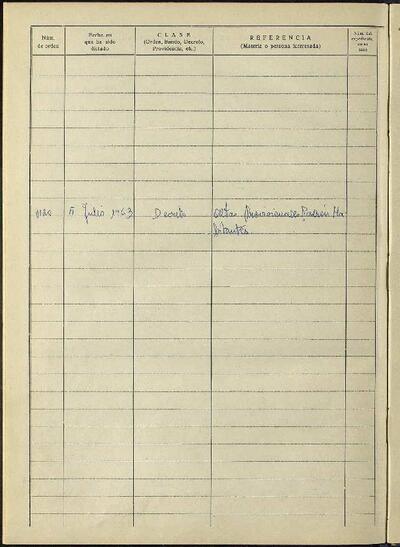 Núm. de orden
Fecha en que ha sido dictado
CLASE
(Orden, Bando, Decreto, Providencia, etc.)
REFERENCIA
(Materia o persona interesada)
Núm. del expediente
Julio 1963
Decreto
Altas Provisionales Padrón Ha
bitantes